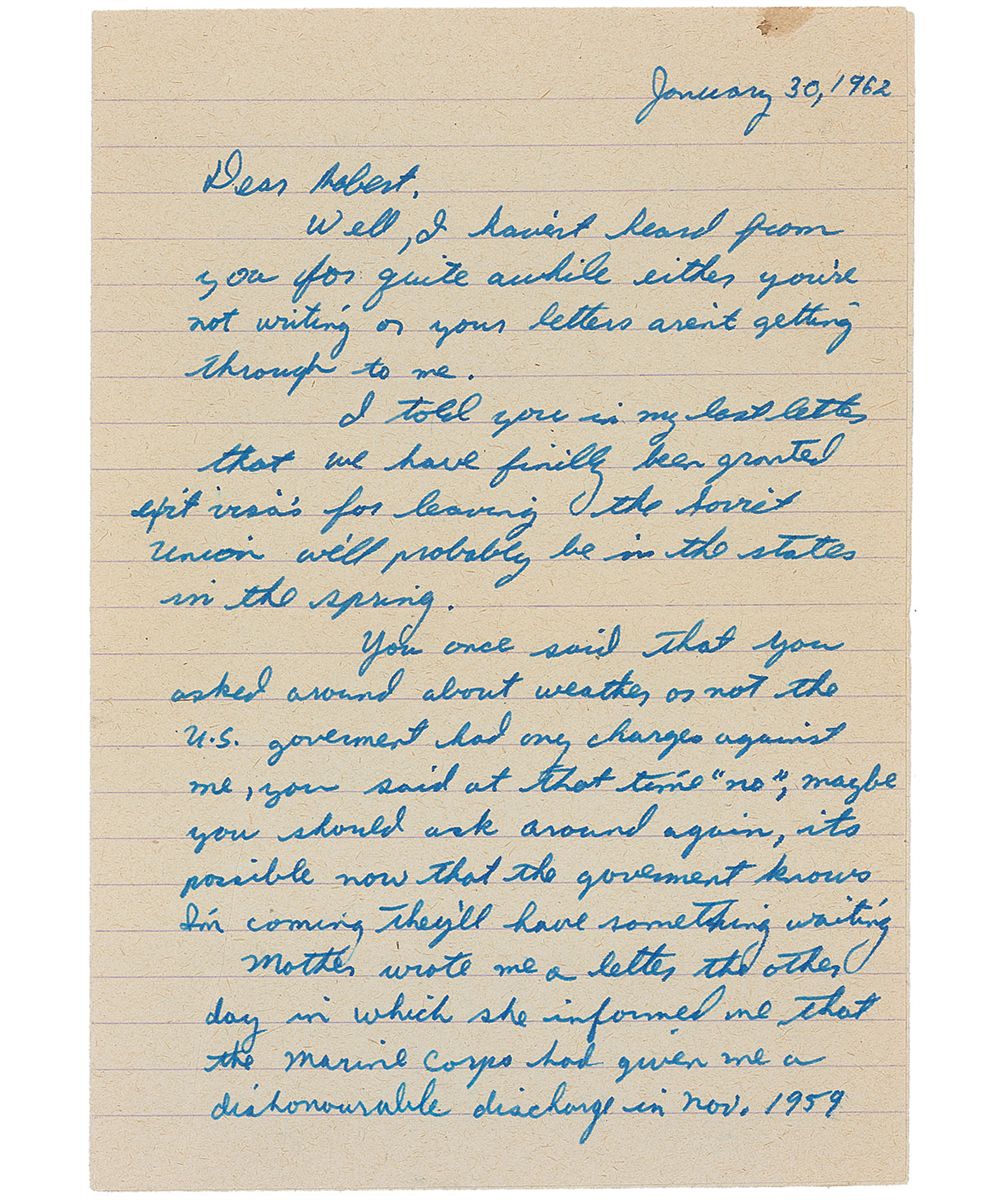 January 30, 1962
Dear Robert,
Well, I hav'ent heard from
you for quite awhile either you're
not writing or your letters aren't getting
through to me.
I told you in my last letter
that we have finilly been granted
exit visa's for leaving the Soviet
Union we'll probably be in the states
in the spring.
You once said that you
asked around about weather or not the
U.S. goverment had any charges against
me, you said at that time "no", maybe
you should ask around again, its
possible now that the goverment knows
I'm coming they'll have something waiting
Mother wrote me a letter the other
day in which she informed me that
the Marine Corps had given me a
dishonourable discharge in Nov. 1959